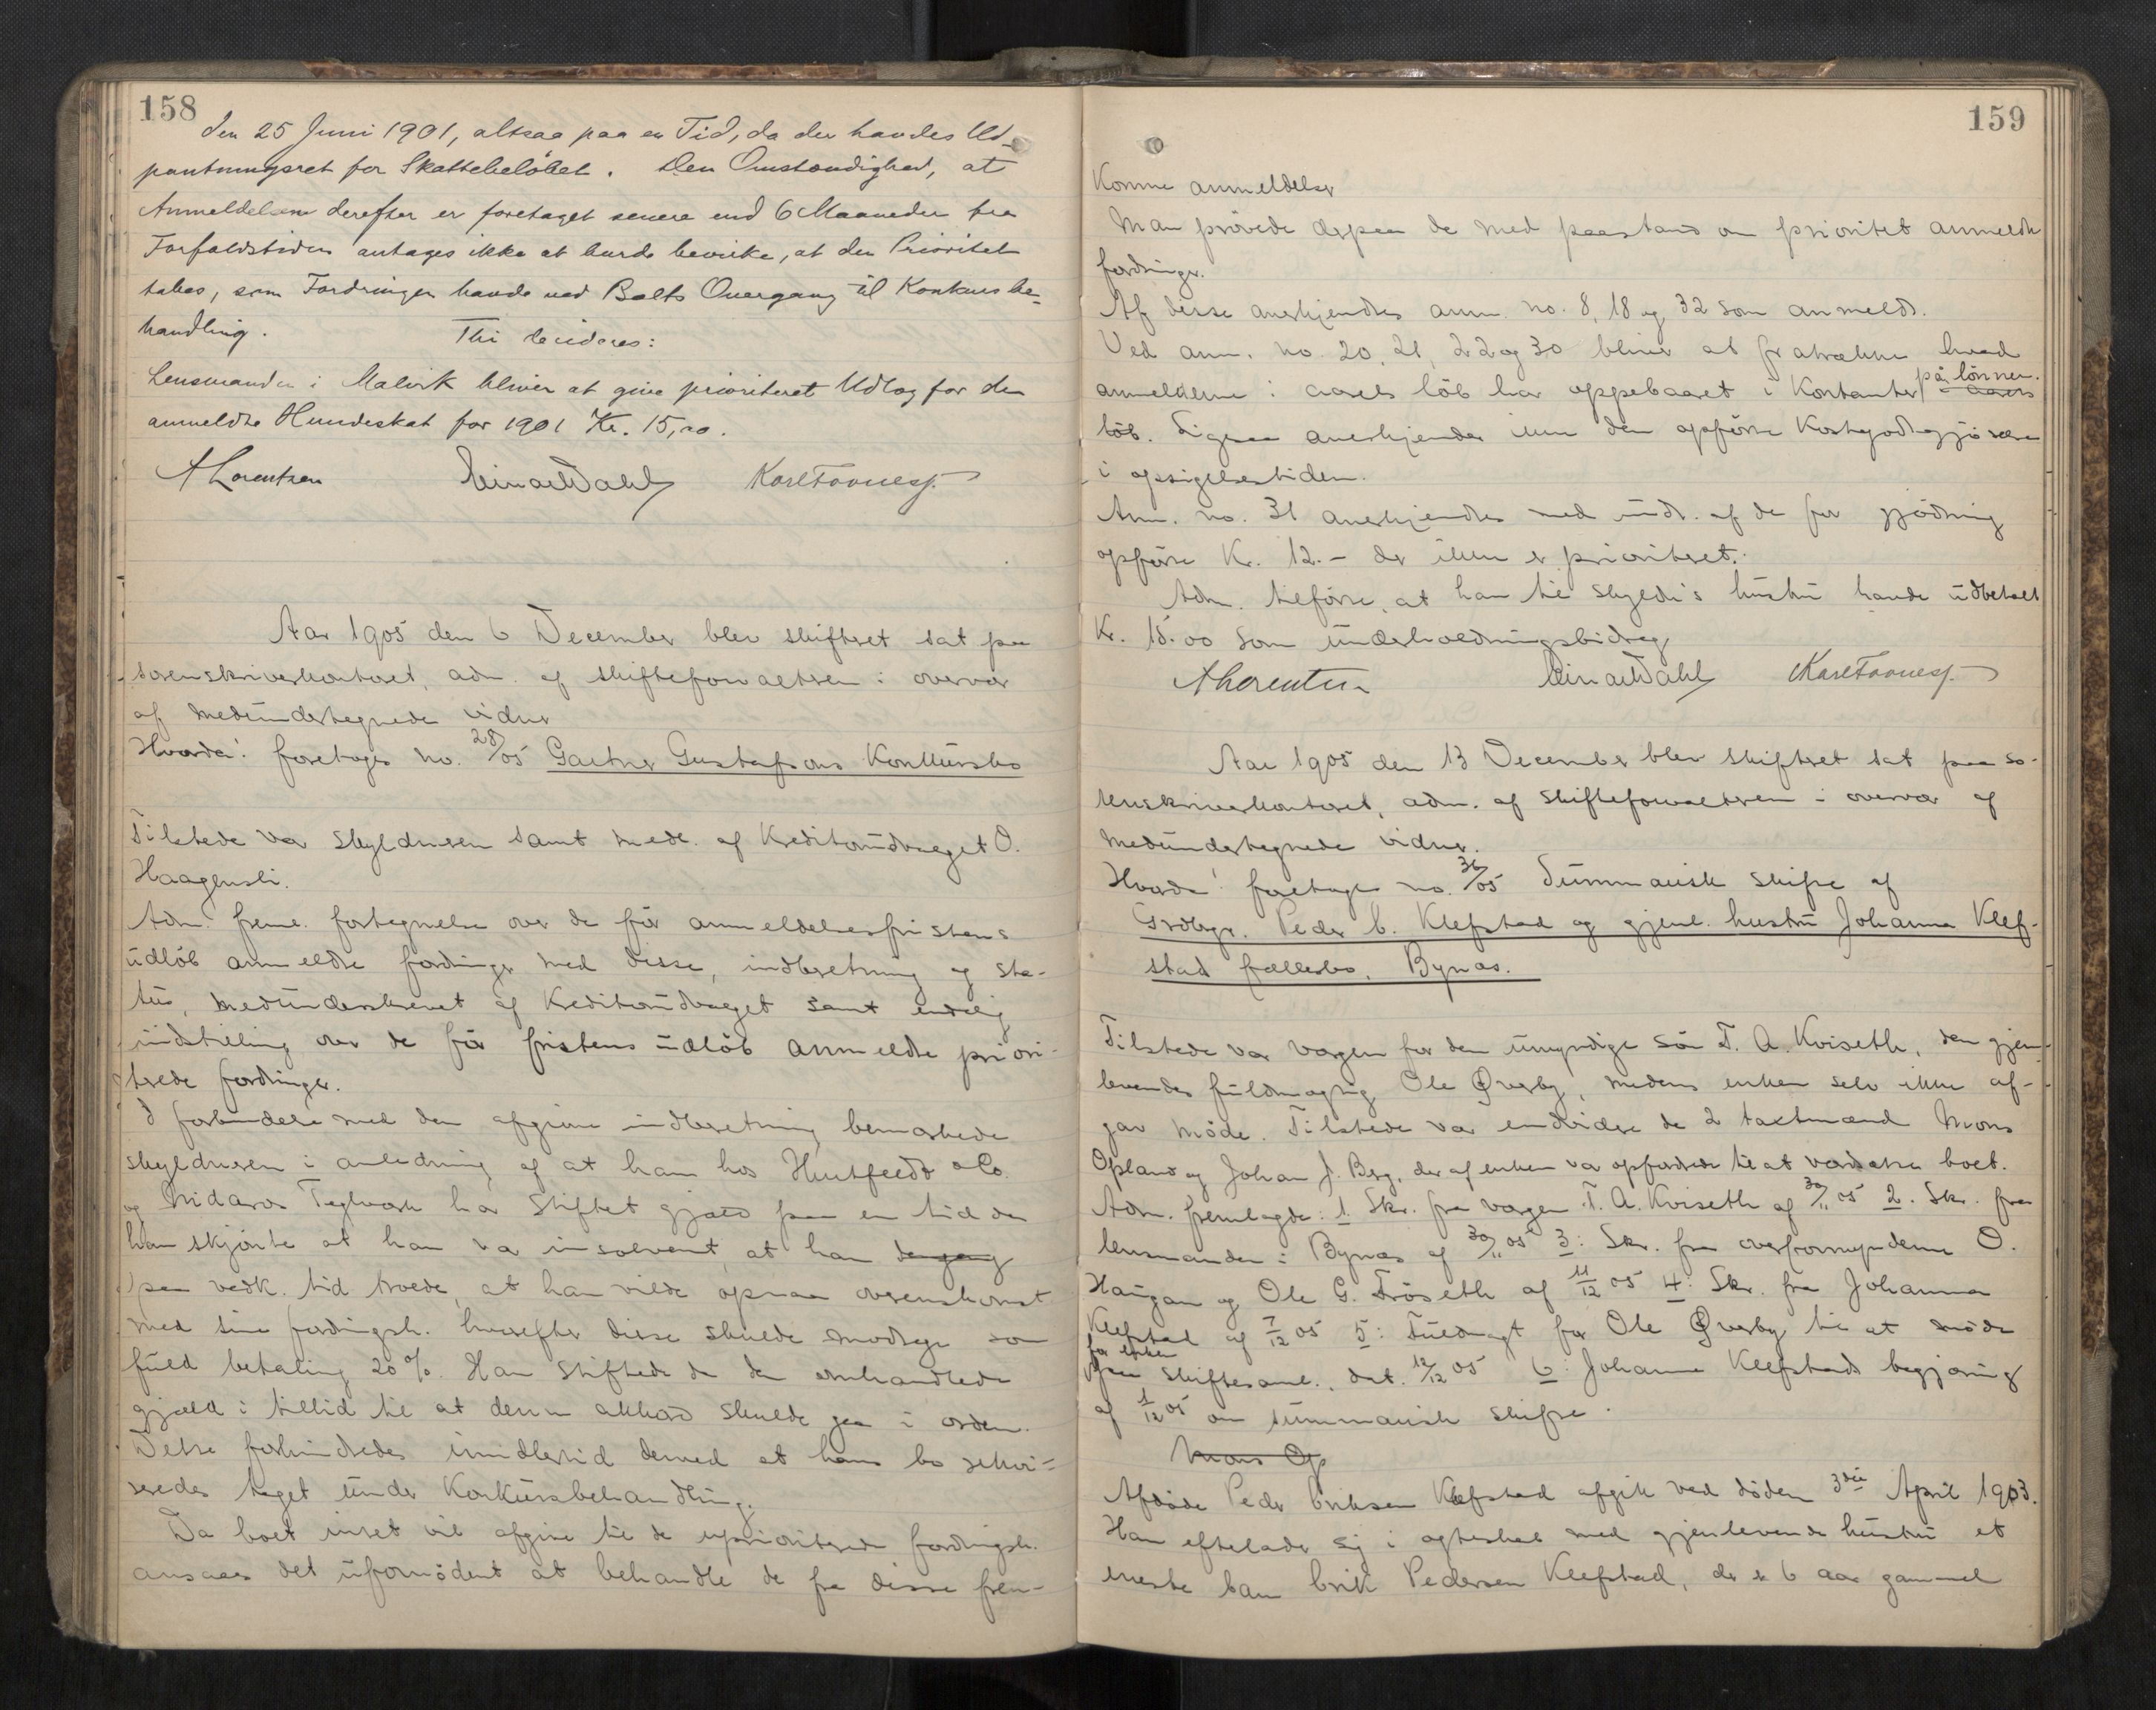 158
den 25 Juni 1901, altsaa paa en Tid, da der havdes Ud-
pantningsret for Skattebeløbet. Den Omstændighed, at
Anmeldelsen derefter er foretaget senere end 6 Maaneder fra
Forfaldstiden antages ikke at burde bevirke, at den Prioritet
tabes, som Fordringen havde ved Boets Overgang til Konkursbe-
handling. Thi decideres:
Lensmanden i Malvik bliver at give prioriteret Udlæg for den
anmeldte Hundeskat for 1901 Kr. 15,00.
A Lorentzen Einar Dahl Karl
Aar 1905 den 6 December blev skifteret sat paa
sorenskriverkontoret, adm. af skifteforvalteren i overvær
af medundertegnede vidner
Hvorda: foretoges no. 28/05 Gartner Gustafsons Konkursbo
Tilstede var skyldneren samt medl. af Kreditorudvalget O.
Haagensli.
Adm. freml. fortegnelse over de før anmeldelsesfristens
udløb anmeldte fordringer med disse, indberetning og sta-
tus, medunderskrevet af Kreditorudvalget samt endelig
indstilling over de før fristens udløb anmeldte priori-
terede fordringer.
I forbindelse med den afgivne indberetning bemærkede
skyldneren i anledning af at han hos Huitfeldt & Co.
og Nidaros Teglværk har stiftet gjæld paa en tid da
han skjønte at han var insolvent, at han dengang
paa vedk. tid troede, at han vilde opnaa overenskomst
med sine fordringsh. hvorefter disse skulde modtage som
fuld betaling 20%. Han stiftede da den omhandlede
gjæld i tillid til at denne akkord skulde gaa i orden.
Dette forhindredes imidlertid derved at hans bo rekvi-
reredes taget under Konkursbehandling.
Da boet intet vil afgive til de uprioriterede fordringsh.
ansaaes det ufornødent at behandle de fra disse frem-
159
komne anmeldelser
Man prøvede derpaa de med paastand om prioritet anmeldte
fordringer.
Af disse anerkjendtes anm. no. 8, 18 og 32 som anmeldt.
Ved anm. no. 20, 21, 22 og 30 bliver at fratrække hvad
anmelderne i aarets løb har oppebaaret i Kontanter på lønnen. aarets
løb. Ligesaa anerkjendes ikke den opførte Kostgodtgjørelse
i opsigelsestiden.
Anm. no. 31 anerkjendtes med undt. af de for gjødning
opførte Kr. 12.- der ikke er prioriteret.
Adm. tilførte, at han til skyldn's hustru havde udbetalt
Kr. 15.00 som underholdningsbidrag
A Lorentzen Einar Dahl Karl
Aar 1905 den 13 December blev skifteret sat paa so-
renskriverkontoret, adm. af skifteforvalteren i overvær af
medundertegnede vidner.
Hvorda: foretoges no. 36/05 Summarisk skifte af
Grdbgr. Peder E. Klefstad og gjenl. hustru Johanna Klef-
stad fællesbo, Bynæs.
Tilstede var værgen for den umyndige søn T. A. Kviseth, den gjen-
levendes fuldmægtig Ole Øverby, medens enken selv ikke af-
gav møde. Tilstede var endvidere de 2 taxtmænd Mons
Opland og Johan J. Berg, der af enken var opfordret til at værdsætte boet.
Adm. fremlagde: 1 Skr. fra værgen T. A. Kviseth af 30/11 05 2. Skr. fra
lensmanden i Bynæs af 30/11 05 3: Skr. fra overformynderne O.
Haugan og Ole G. Frøseth af 11/12 05 4: Skr. fra Johanna
Klefstad af 7/12 05 5: Fuldmagt for Ole Øverby til at møde
for enken
paa skiftesaml., dat. 12/12 05 6: Johanna Klefstads begjæring
af 1/12 05 om summarisk skifte.
Mons Op
Afdøde Peder Eriksen Klefstad afgik ved døden 3die April 1903.
Han efterlader sig i ægteskab med gjenlevende hustru et
eneste barn Erik Pedersen Klefstad, der er 6 aar gammel